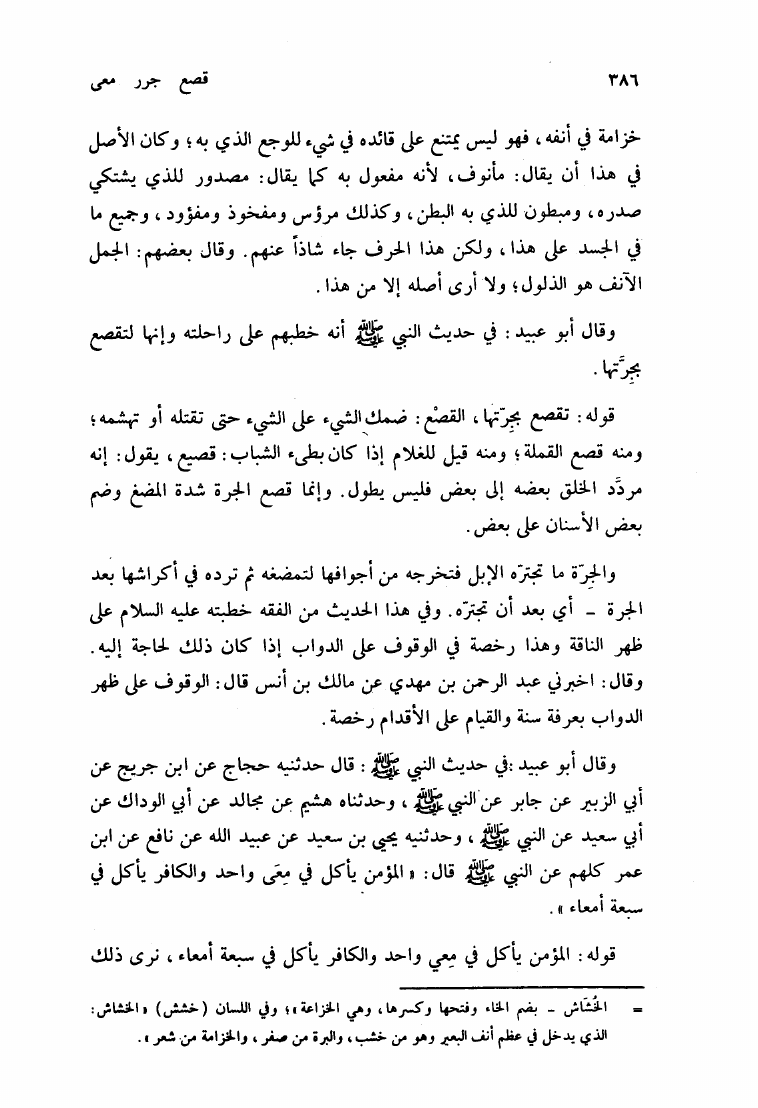 ٣٨٦ قصع جرر معى
خزامة في أنفه، فهو ليس يمتنع على قائده في شيء للوجع الذي به؛ وكان الأصل
في هذا أن يقال: مأنوف، لأنه مفعول به كما يقال: مصدور للذي يشتكي
صدره، ومبطون للذي به البطن، وكذلك مرؤس ومفخوذ ومفؤود، وجميع ما
في الجسد على هذا، ولكن هذا الحرف جاء شاذاً عنهم. وقال بعضهم: الجمل
الآنف هو الذلول؛ ولا أرى أصله إلا من هذا.
وقال أبو عبيد: في حديث النبي ﷺ أنه خطبهم على راحلته وإنها لتقصع
بجِرَّتها.
قوله: تقصع بجِرّتها، القصْع: ضمك الشيء على الشيء حتى تقتله أو تهشمه؛
ومنه قصع القملة؛ ومنه قيل للغلام إذا كان بطيء الشباب: قصيع، يقول: إنه
مردَّد الخلق بعضه إلى بعض فليس يطول. وإنما قصع الجرة شدة المضغ وضم
بعض الأسنان على بعض.
والجِرّة ما تجترّه الإبل فتخرجه من أجوافها لتمضغه ثم ترده في أكراشها بعد
الجرة – أي بعد أن تجترّه. وفي هذا الحديث من الفقه خطبته عليه السلام على
ظهر الناقة وهذا رخصة في الوقوف على الدواب إذا كان ذلك لحاجة إليه.
وقال: اخبرني عبد الرحمن بن مهدي عن مالك بن أنس قال: الوقوف على ظهر
الدواب بعرفة سنة والقيام على الأقدام رخصة.
وقال أبو عبيد :في حديث النبي ﷺ : قال حدثنيه حجاج عن ابن جريج عن
أبي الزبير عن جابر عن النبي ﷺ ، وحدثناه هشيم عن مجالد عن أبي الوداك عن
أبي سعيد عن النبي ﷺ ، وحدثنيه يحيى بن سعيد عن عبيد الله عن نافع عن ابن
عمر كلهم عن النبي ﷺ قال: « المؤمن يأكل في مِعَى واحد والكافر يأكل في
سبعة أمعاء ».
قوله: المؤمن يأكل في مِعي واحد والكافر يأكل في سبعة أمعاء ، نرى ذلك
= الخُشَاش – بضم الخاء وفتحها وكسرها، وهي الخزاعة »؛ وفي اللسان (خشش) « الخشاش:
الذي يدخل في عظم أنف البعير وهو من خشب، والبرة من صفر، والخزامة من شعر ».